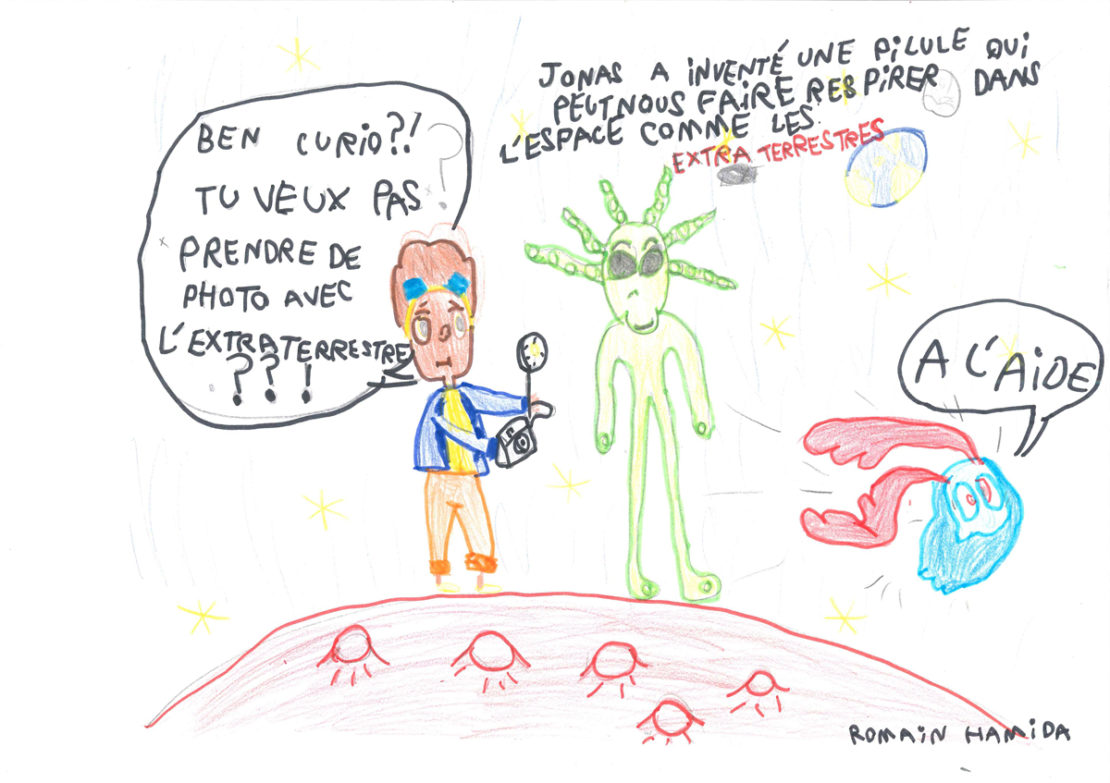 JONAS A INVENTÉ UNE PILULE QUI
PEUT NOUS FAIRE RESPIRER DANS
L'ESPACE COMME LES
EXTRA TERRESTRES
BEN CURIO?!
TU VEUX PAS
PRENDRE DE
PHOTO AVEC
L'EXTRATERRESTRE
??!
A L'AIDE
ROMAIN HAMIDA